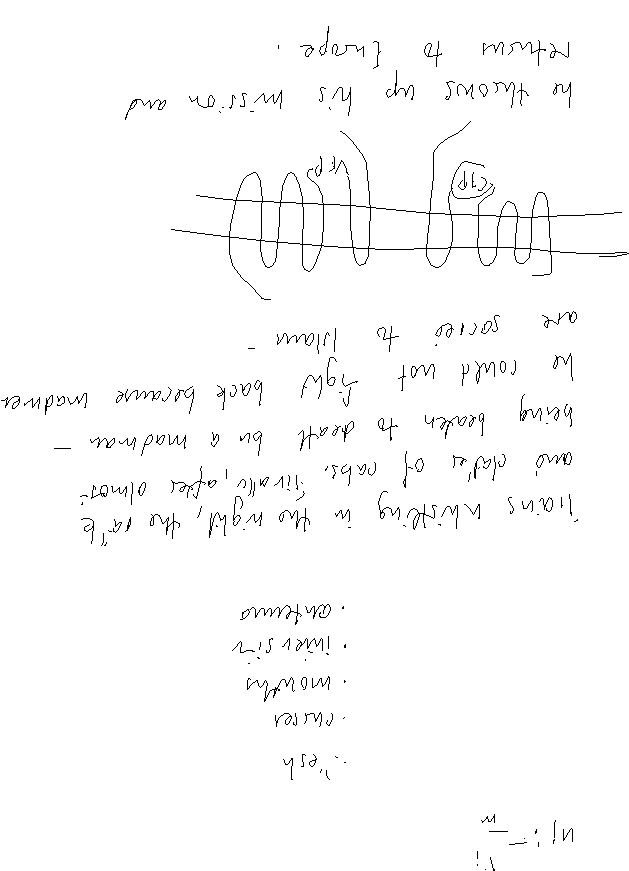 curses
mouths
antenna
trains whistling in the night, the
and of cabs. Finally, after almost
being beaten to death by a madman -
he could not fight back because madmen
are sacred to Islam -
CFP YFP
he throws up his mission and
returns to Europe.